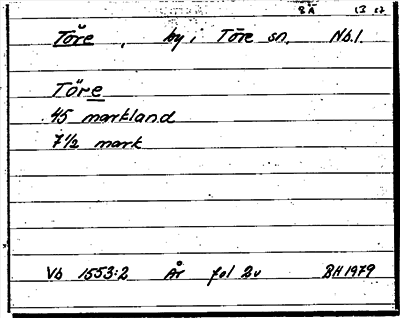 Töre, by i Töre sn. Nb.l.
Töre
45 markland
7½ mark
Vb 1553:2 År fol 2v BH 1979